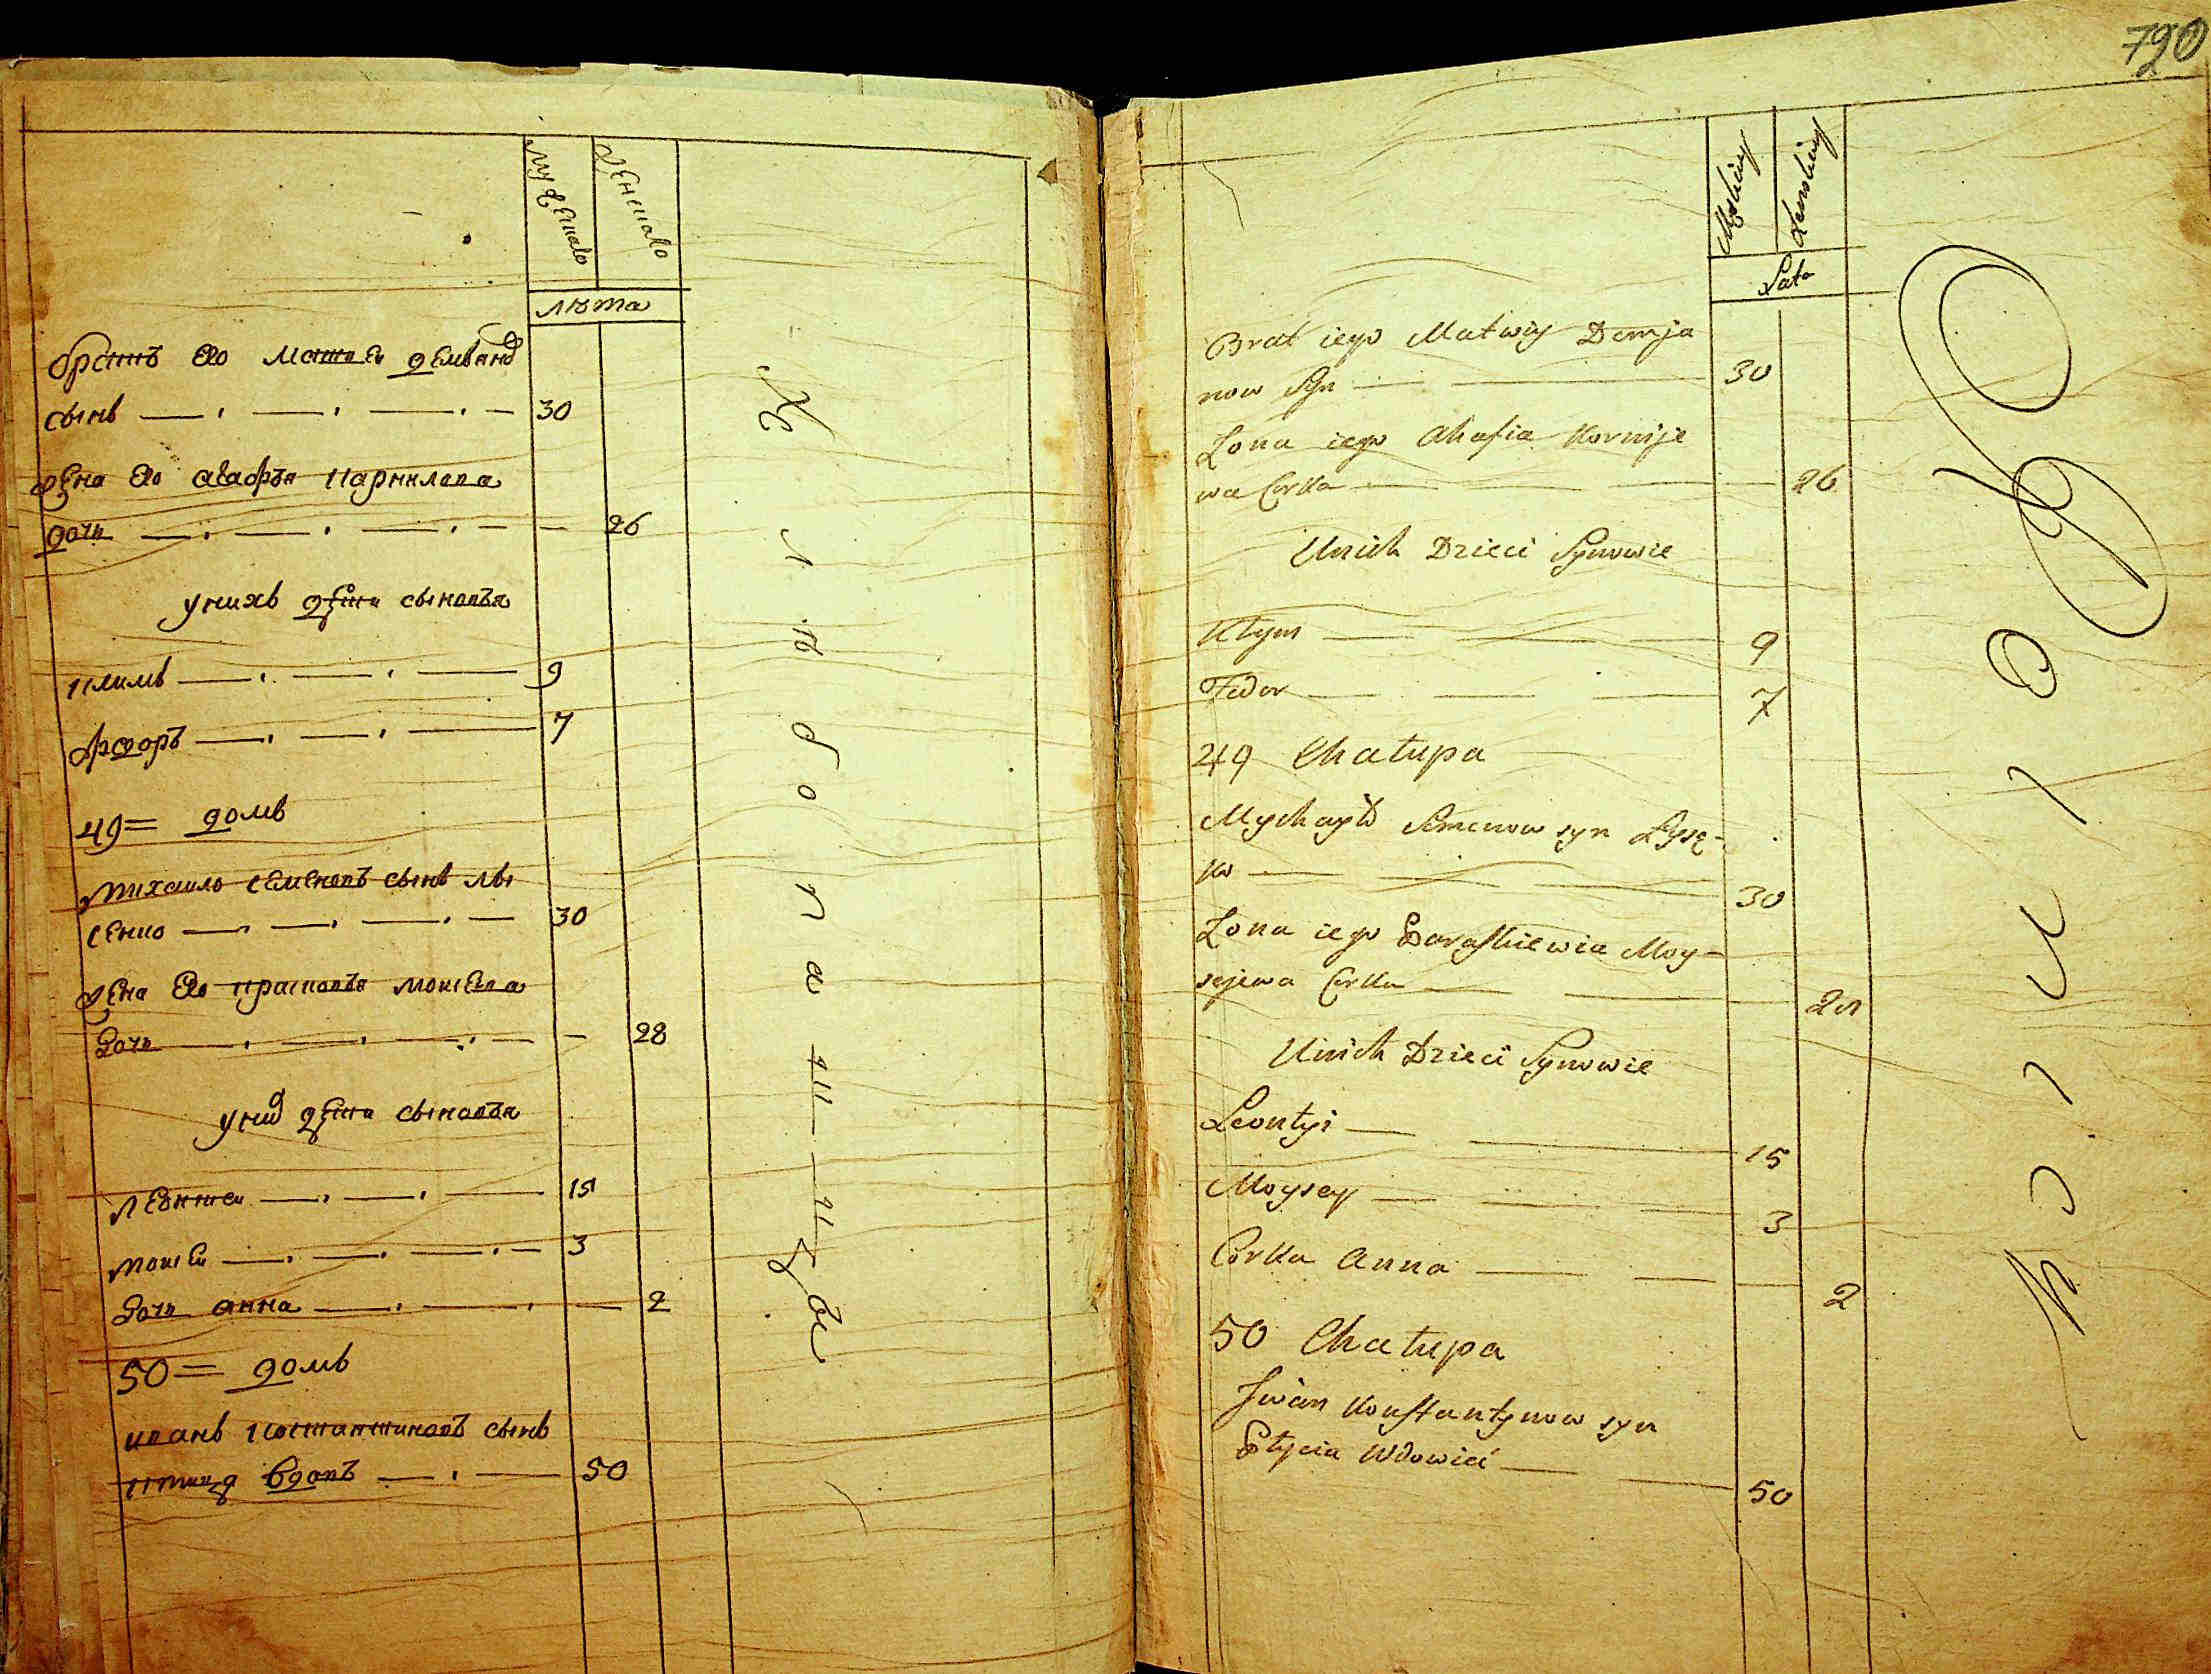 мужеска
женска
лѣта
братъ его матвеи демянов
сынъ 30
жена его агафѣя карнилова
дочь 26
у нихъ дети сыновѣя
климъ 9
федоръ 7
49= домъ
михаило семеновъ сынъ лы
сенко 30
жена его прасковѣя моисеева
дочь 28
у них дети сыновѣя
леонтеи 15
моисеи 3
дочь анна 2
50= домъ
иванъ костантиновъ сынъ
птица вдовъ 50
хлѣбопашцы
790
Męskiey
Żenskiey
Lata
Brat iego Matwiy Demja
now Syn 30
Żona iego Ahafia Kornije
wa Corka 26
Unich Dzieci Synowie
Klym 9
Fedor 7
49 Chałupa
Mychayło Semenow syn Łysę-
ko 30
Żona iego Paraskiewia Moy-
sejewa Corka 28
Unich Dzieci Synowie
Leontyi 15
Moysey 3
Corka Anna 2
50 Chałupa
Iwan Konstantynow syn
Ptycia Wdowieć 50